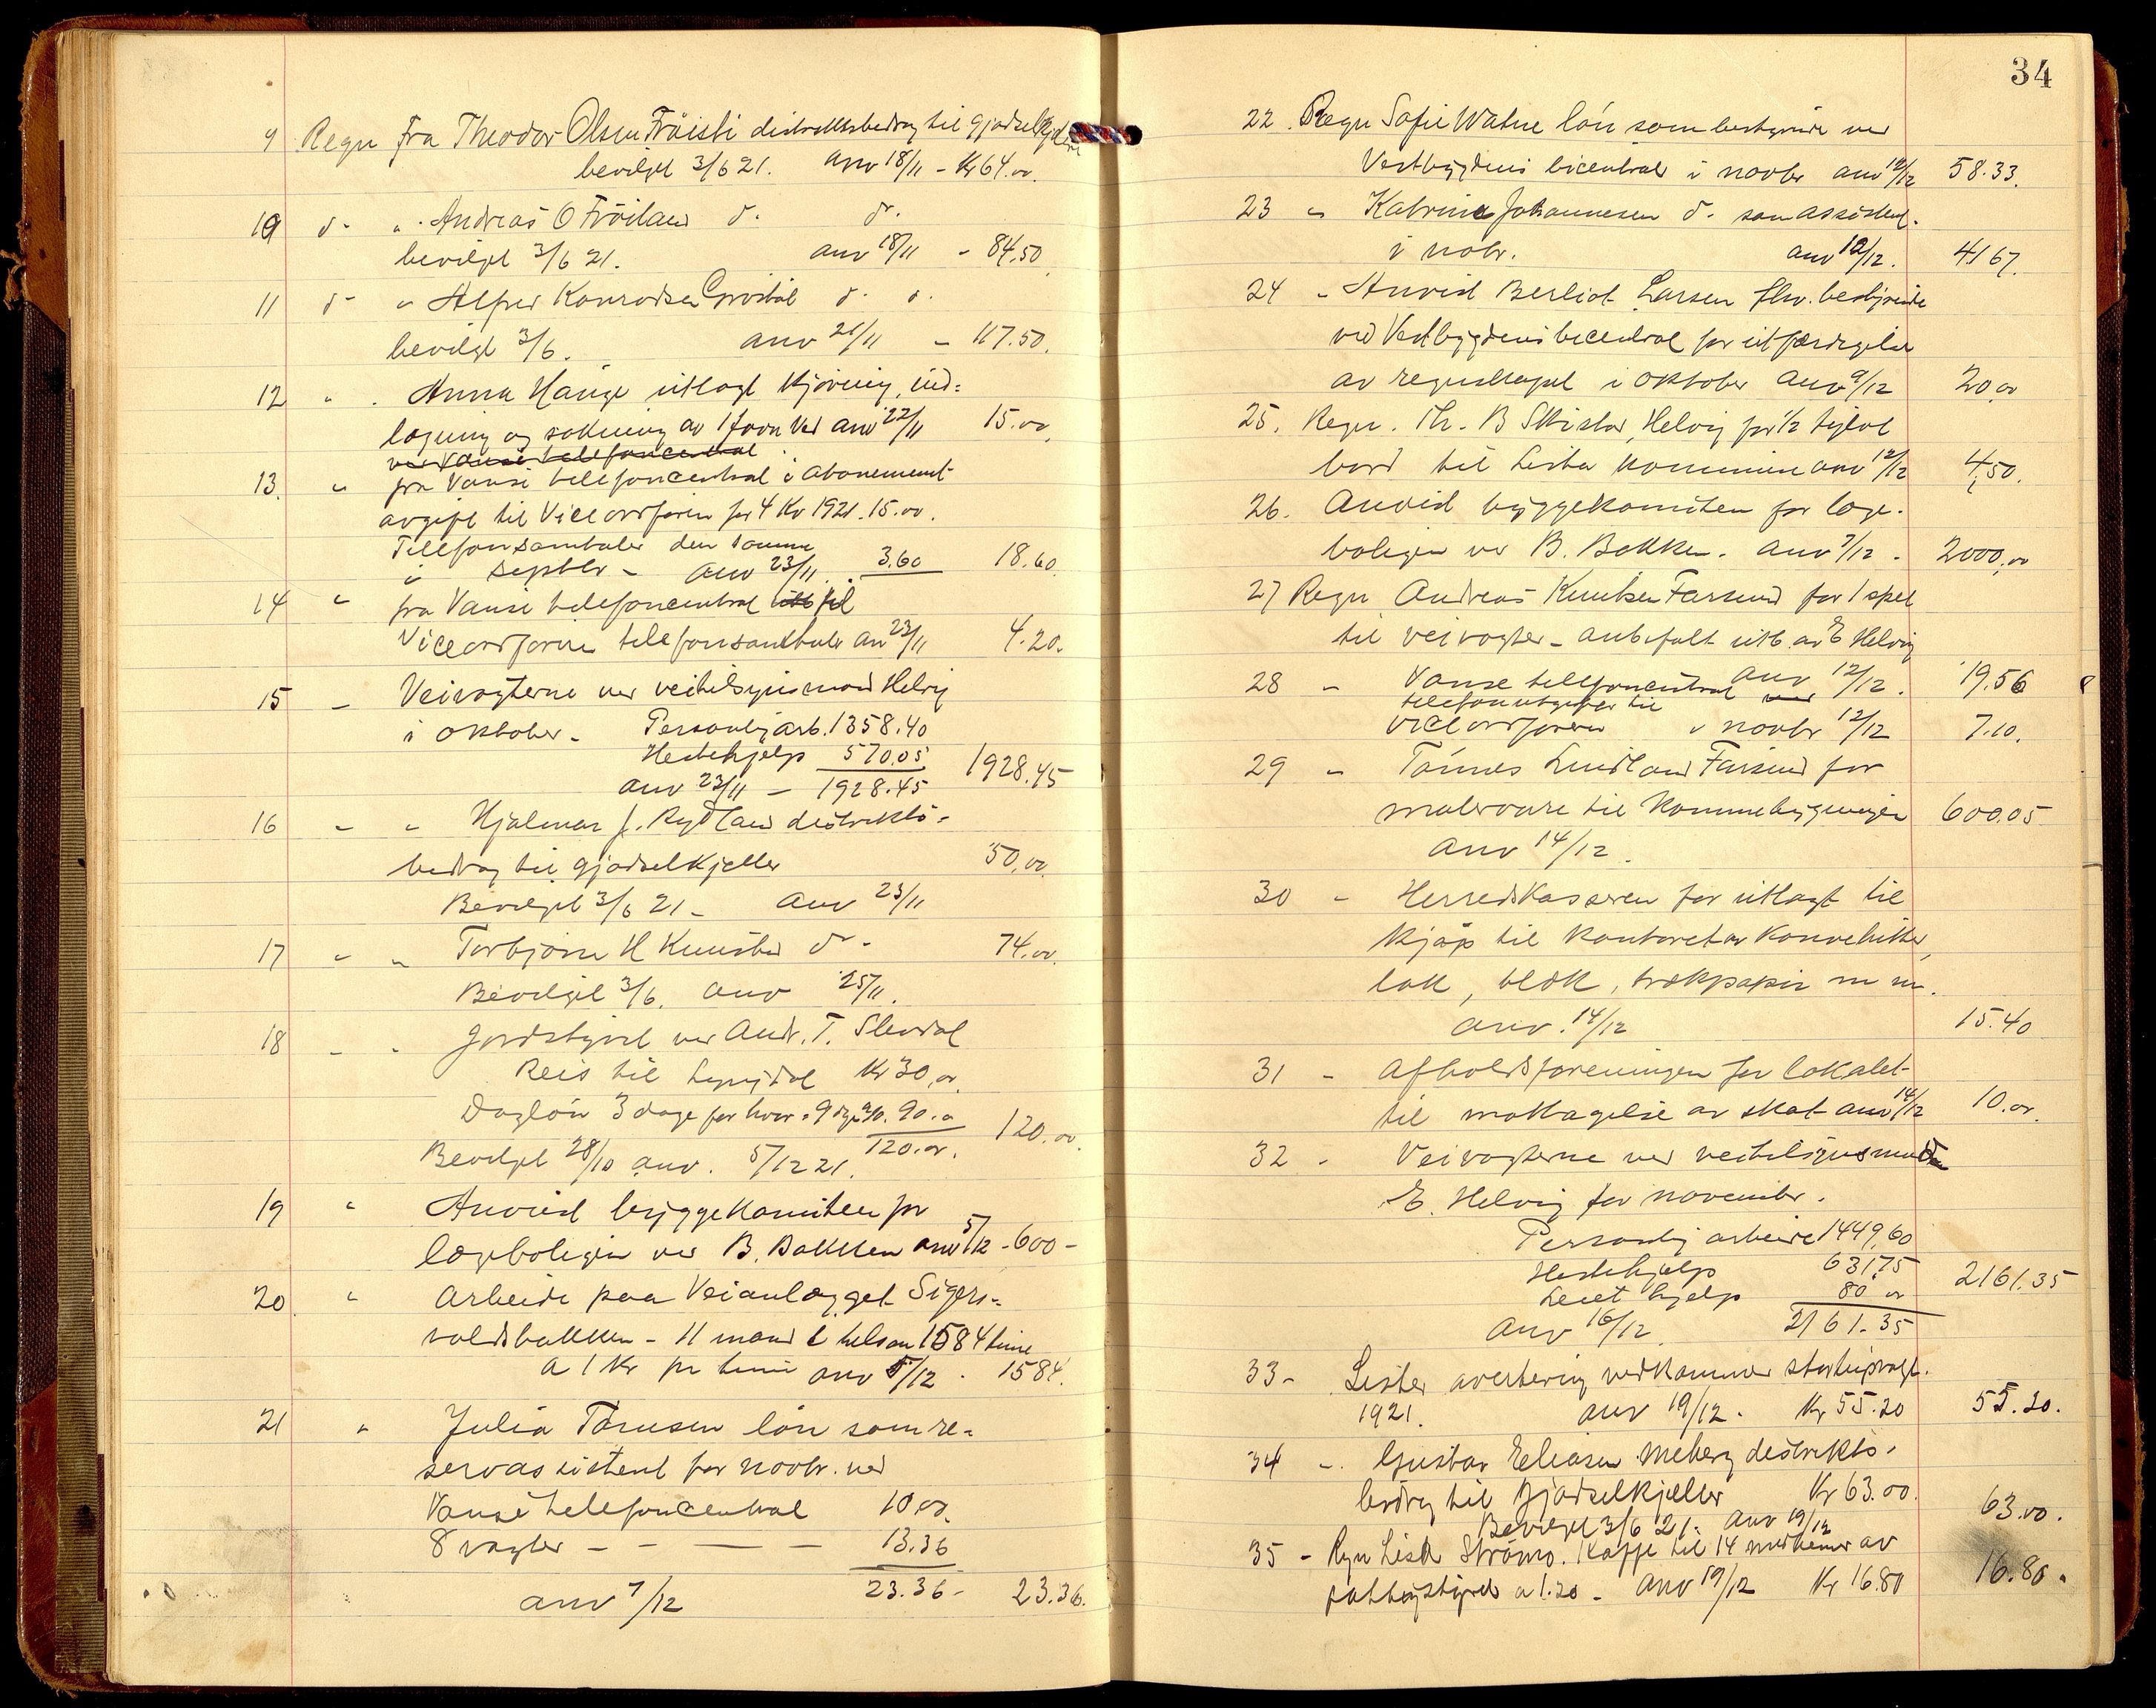 9 Regn fra Theodor Olsen Fröisti distriktsbedrag til gjødselkjeller
bevilget 3/6 21. anv 18/11 - Kr 64.00
10 d- " Andreas O Fröiland d. do.
bevilgt 3/6 21. anv 18/11 - 84.50
11 d- " Alfred Konradsen d. d.
bevilgt 3/6. anv 21/11 - 117.50.
12 " . Anna Hauge utlagt kjøring, ind-
lægning og sakning av 1 favn ved anv 22/11 15.00
ved Vanse telefoncentral
13. " fra Vanse telefoncentral i abonement
avgift til Viceordføren for 4 Kv 1921. 15.00.
Telefonsamtaler den samme
i septbr - anv 23/11. 3.60 18.60
14 " fra Vanse telefoncentral til
Viceordføren telefonsamtale an 23/11 4.20.
15 - Veivogterne ved veitilsynsmand Helvig
i oktober - Personlig arb. 1358.40
Hestehjelp 570.05
anv 23/11 - 1928.45 1928.45
16 - " Hjalmar J. Rydland distrikts-
bedrag til gjødselkjeller 50.00
Bevilget 3/6 21 - anv 23/11
17 - " Torbjørn H Knudsen do - 74.00
Bevilget 3/6. anv 25/11.
18 - . Jordstyret ved Andr. T. Slevdal
Reis til Lyngdal Kr 30.00
Dagløn 3 dage for hver - 9 dge 90.00
120.00. 120.00
Bevilget 28/10 anv. 5/12 21.
19 " Anvist byggekomiteen for
lægeboligen ved B. Bakken anv 5/12 - 600 -
20. " Arbeide paa Veianlægget Sigers-
voldsbakken - 11 mand tilsam 1584 time
a 1 Kr pr time anv 5/12 . 1584.
21 " Julia Tønnesen løn som re-
servassistent for novbr. ved
Vanse telefoncentral 10.00
8 vagter - - - - 13.36
anv 7/12 23.36 - 23.36.
34
22. Regn Sofie Watne løn som bestyrende ved
Vestbygdens bicentral i novbr anv 12/12 58.33.
23 " Katrine Johannesen d. som assistent.
i nobr. anv 12/12. 41 67.
24 " Anvist Berliot Larsen fhv. bestyrende
ved Vestbygdens bicentral for utfærdigelse
av regnskapet i oktober anv 9/12 20.00
25. Regn. Th. B Skeistad, Helvig for 1/2 tylvt
bord til Lista kommune anv 12/12 4.50.
26. Anvist byggekomiteen for læge-
boligen ved B. Bakken. anv 7/12 - 2000.00
27 Regn Andreas Knutsen Farsund for 1 spet
til veivogter - anbefalt utb. av E Helvig
anv 12/12. 19.56
28 - Vanse telefoncentral ved
telefonutgifter til
viceordføreren i novbr 12/12 7.10.
29 " Tønnes Lindland Farsund for
malervare til Kommunebygningen 600.05
anv 14/12.
30 - Herredskasseren for utlagt til
kjøp til kontoret av Konvolutter,
lak, blæk, trækpapir m m.
anv. 14/12 15.40
31 - Afholdsforeningen for lokalet
til mottagelse av skat anv 14/12 10.00
32 - Veivogterne ved veitilsynsmanden
E. Helvig for november.
Personlig arbeide 1449.60
Hestehjelp 631.75
Leiet hjelp 80.00
anv 16/12. 2161.35 2161.35
33 - Lister avertering vedkommer stortingsvalg.
1921. anv 19/12. Kr 55.20 55.20.
34 -. Gustav Eliasen Meberg distrikts-
bedrag til Gjødselkjeller Kr 63.00.
Bevilget 3/6 21. anv 19/12 63.00.
35 - Regn Lisa Strømo. Kaffe til 14 medlemer av
fattigstyret a 1.20 - anv 19/12 Kr 16.80 16.80.